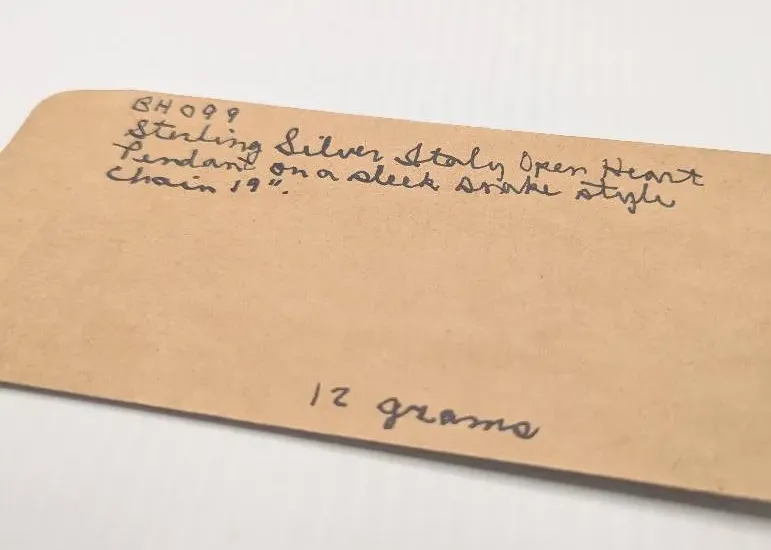 BH099
Sterling Silver Italy Open Heart
Pendant on a sleek snake style
Chain 19".
12 grams